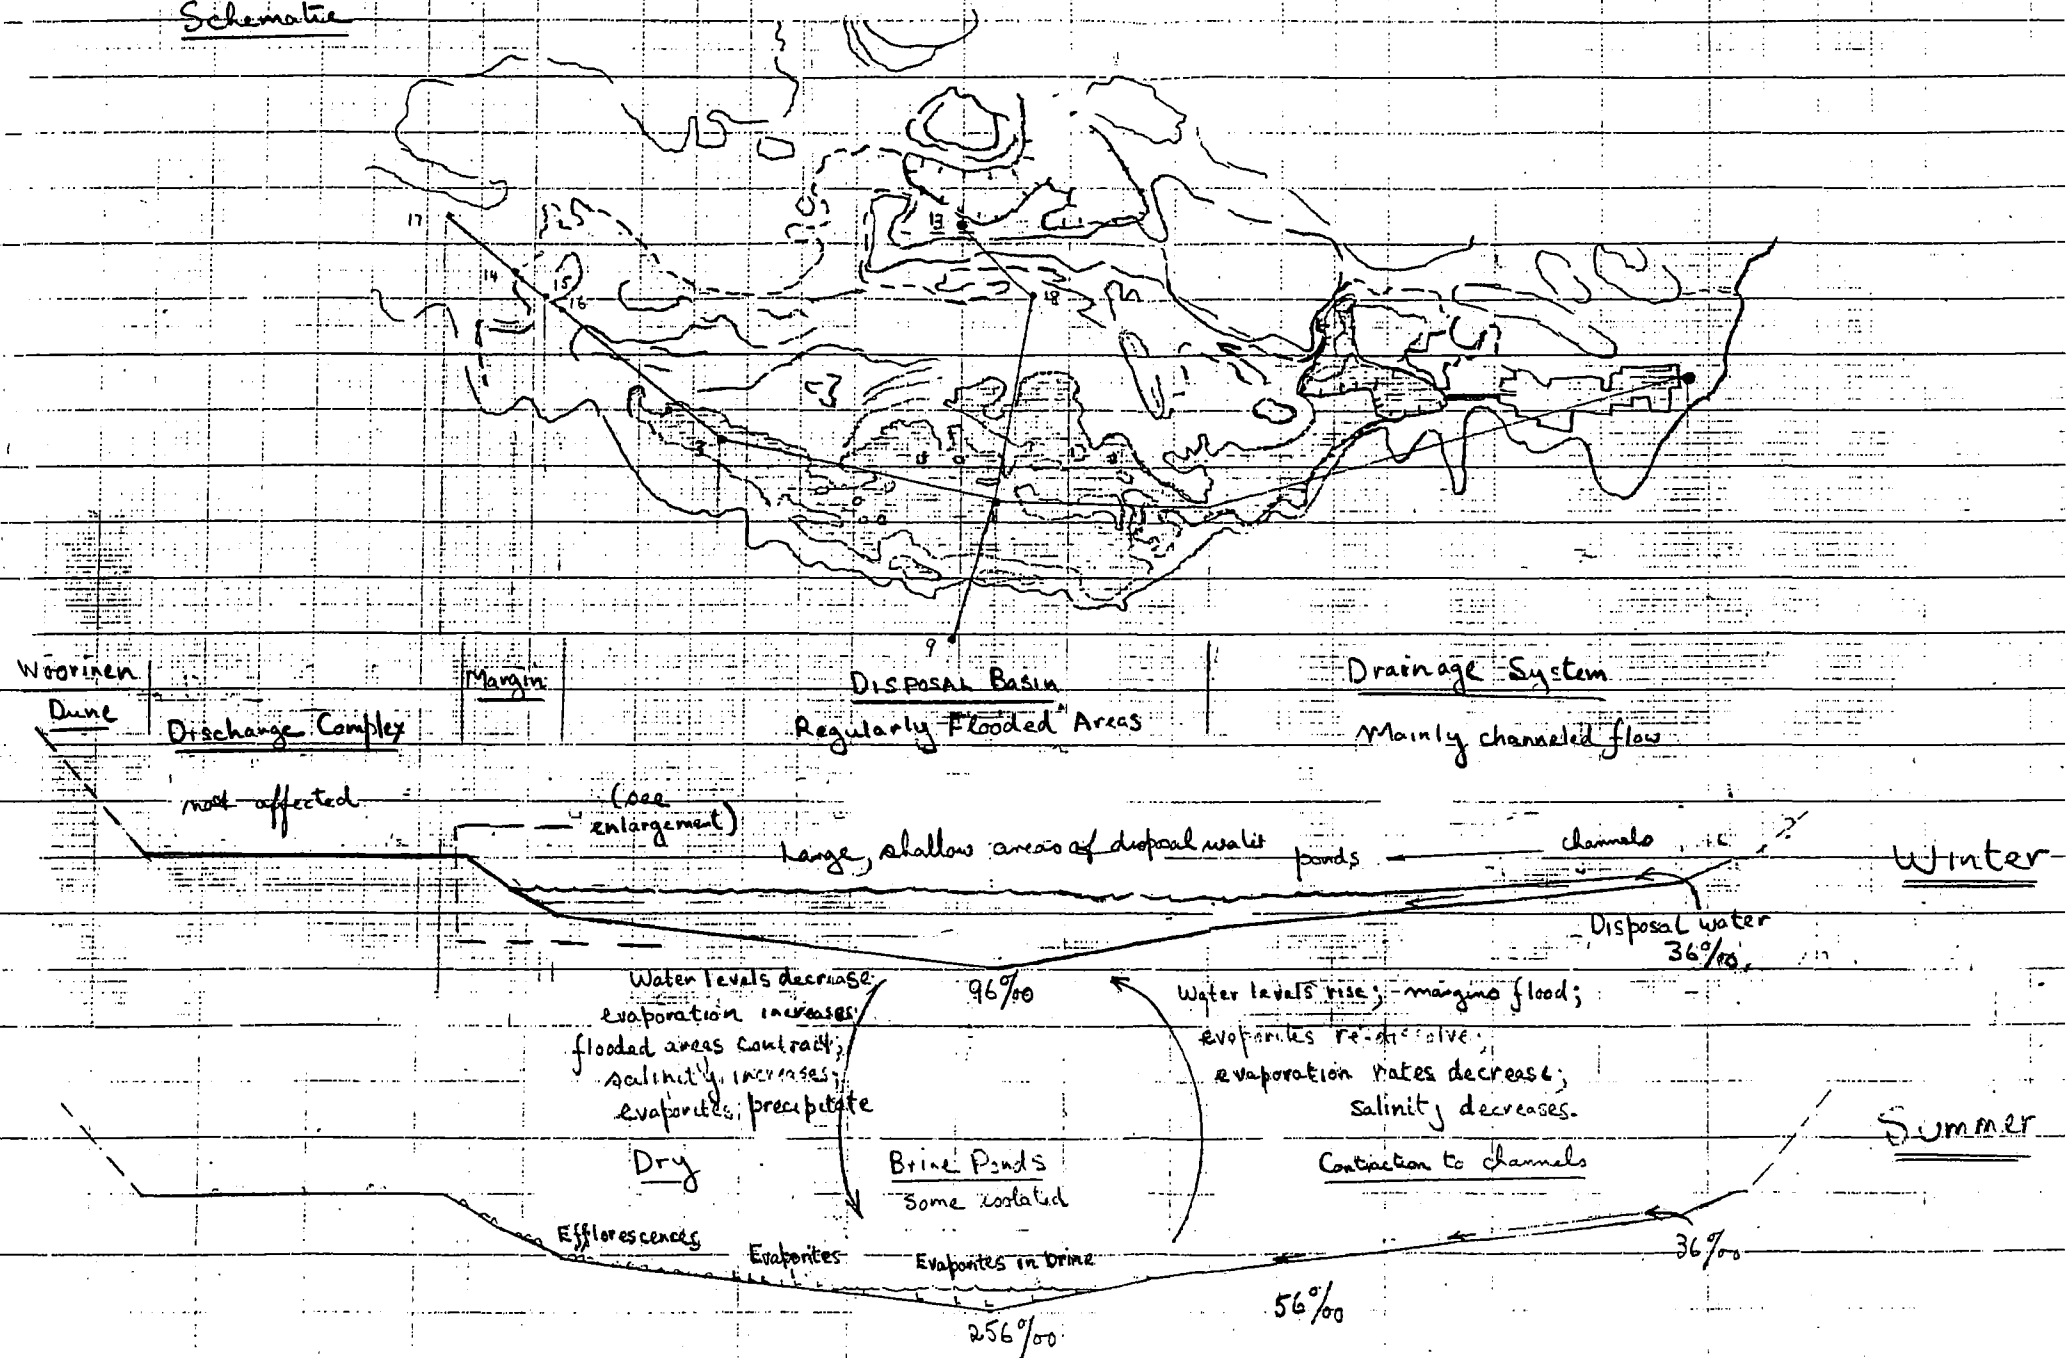 Schematic
17
14
15
16
13
18
3
9
Woorinen
Dune
Discharge Complex
Margin
DISPOSAL BASIN
Regularly Flooded Areas
Drainage System
Mainly channeled flow
not affected
(see
enlargement)
Large, shallow areas of disposal water
ponds
channels
?
Winter
Disposal water
36‰
96‰
Water levels decrease;
evaporation increases;
flooded areas contract;
salinity increases;
evaporites precipitate
Water levels rise; margins flood;
evaporites re-dissolve;
evaporation rates decrease;
salinity decreases.
Summer
Dry
Brine Ponds
Some isolated
Contraction to channels
Efflorescences
Evaporites
Evaporites in brine
36‰
56‰
256‰